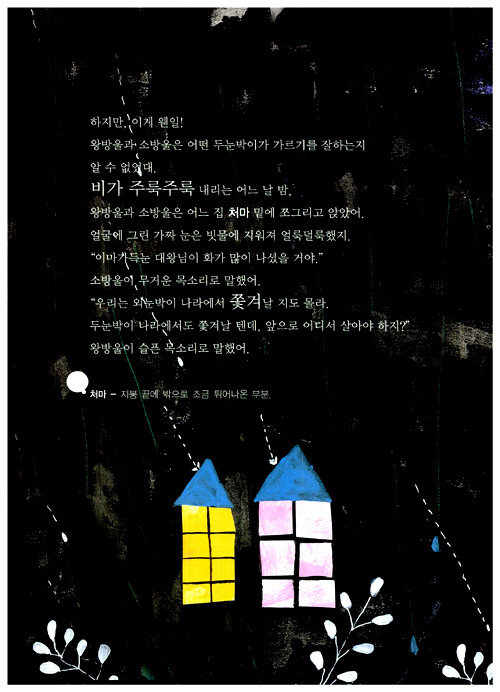 하지만, 이게 웬일!
왕방울과 소방울은 어떤 두눈박이가 가르기를 잘하는지
알 수 없었대.
비가 주룩주룩 내리는 어느 날 밤,
왕방울과 소방울은 어느 집 처마 밑에 쪼그리고 앉았어.
얼굴에 그린 가짜 눈은 빗물에 지워져 얼룩덜룩했지.
“이마가득눈 대왕님이 화가 많이 나셨을 거야.”
소방울이 무거운 목소리로 말했어.
“우리는 외눈박이 나라에서 쫓겨날 지도 몰라.
두눈박이 나라에서도 쫓겨날 텐데, 앞으로 어디서 살아야 하지?”
왕방울이 슬픈 목소리로 말했어.
처마 – 지붕 끝에 밖으로 조금 튀어나온 부분.